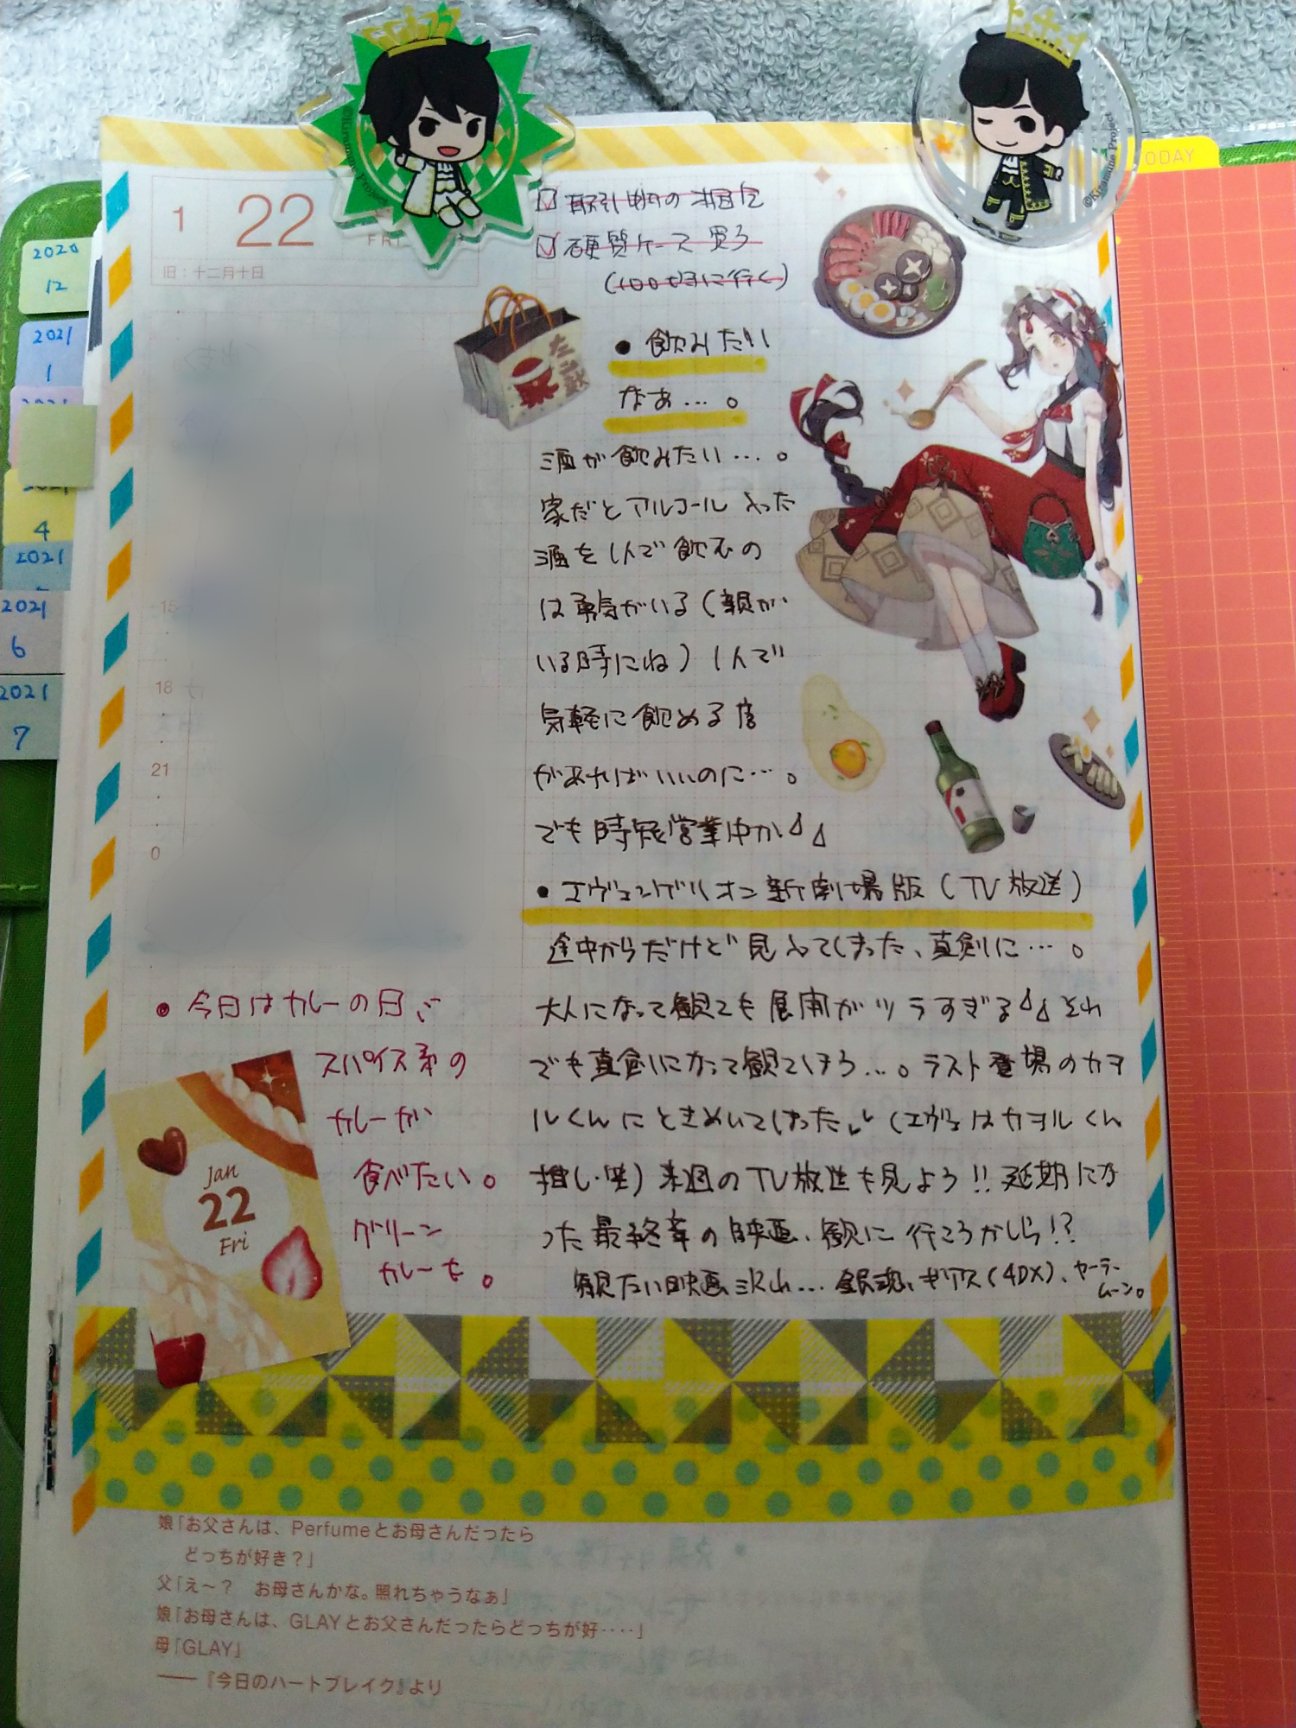 TODAY
©Kramune Project
2020
12
2021
1
2021
4
2021
2021
6
2021
7
1 22
FRI
旧：十二月十日
硬質ケース買う
(100均に行く)
たこ
● 飲みたい
なぁ…。
酒が飲みたい…。
家だとアルコール入った
酒を1人で飲むの
は勇気がいる(親が
いる時にね) 1人で
気軽に飲める店
があればいいのに…。
でも時短営業中か
15
18
21
0
● エヴァンゲリオン新劇場版(TV放送)
途中からだけど見入ってしまった、真剣に…。
大人になって観ても展開がツラすぎる それ
でも真剣になって観てしまう…。ラスト登場のカヲ
ルくんにときめいてしまった (エヴァはカヲルくん
推し・笑) 来週のTV放送も見よう!! 延期にな
った最終章の映画、観に行こうかしら!?
観たい映画沢山… 銀魂、ギアス(4DX)、セーラー
ムーン。
● 今日はカレーの日
スパイス系の
カレーが
食べたい。
グリーン
カレーを。
Jan
22
Fri
娘「お父さんは、Perfumeとお母さんだったら
どっちが好き？」
父「え〜？　お母さんかな。照れちゃうなぁ」
娘「お母さんは、GLAYとお父さんだったらどっちが好‥‥」
母「GLAY」
――『今日のハートブレイク』より